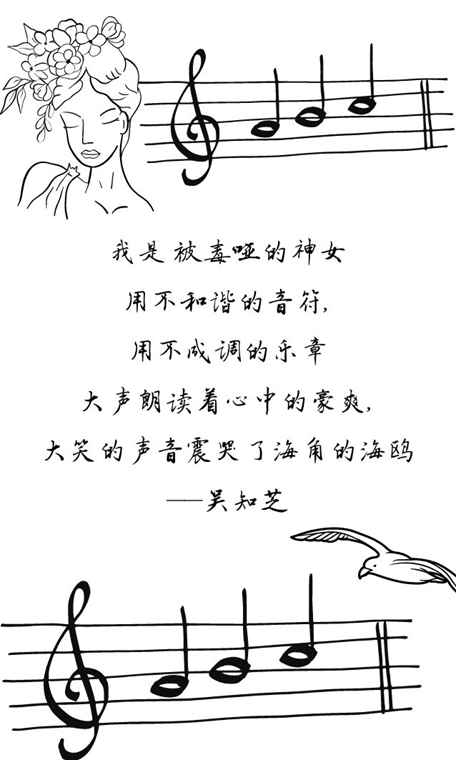 我是被毒哑的神女
用不和谐的音符,
用不成调的乐章
大声朗读着心中的豪爽,
大笑的声音震哭了海角的海鸥
——吴知芝